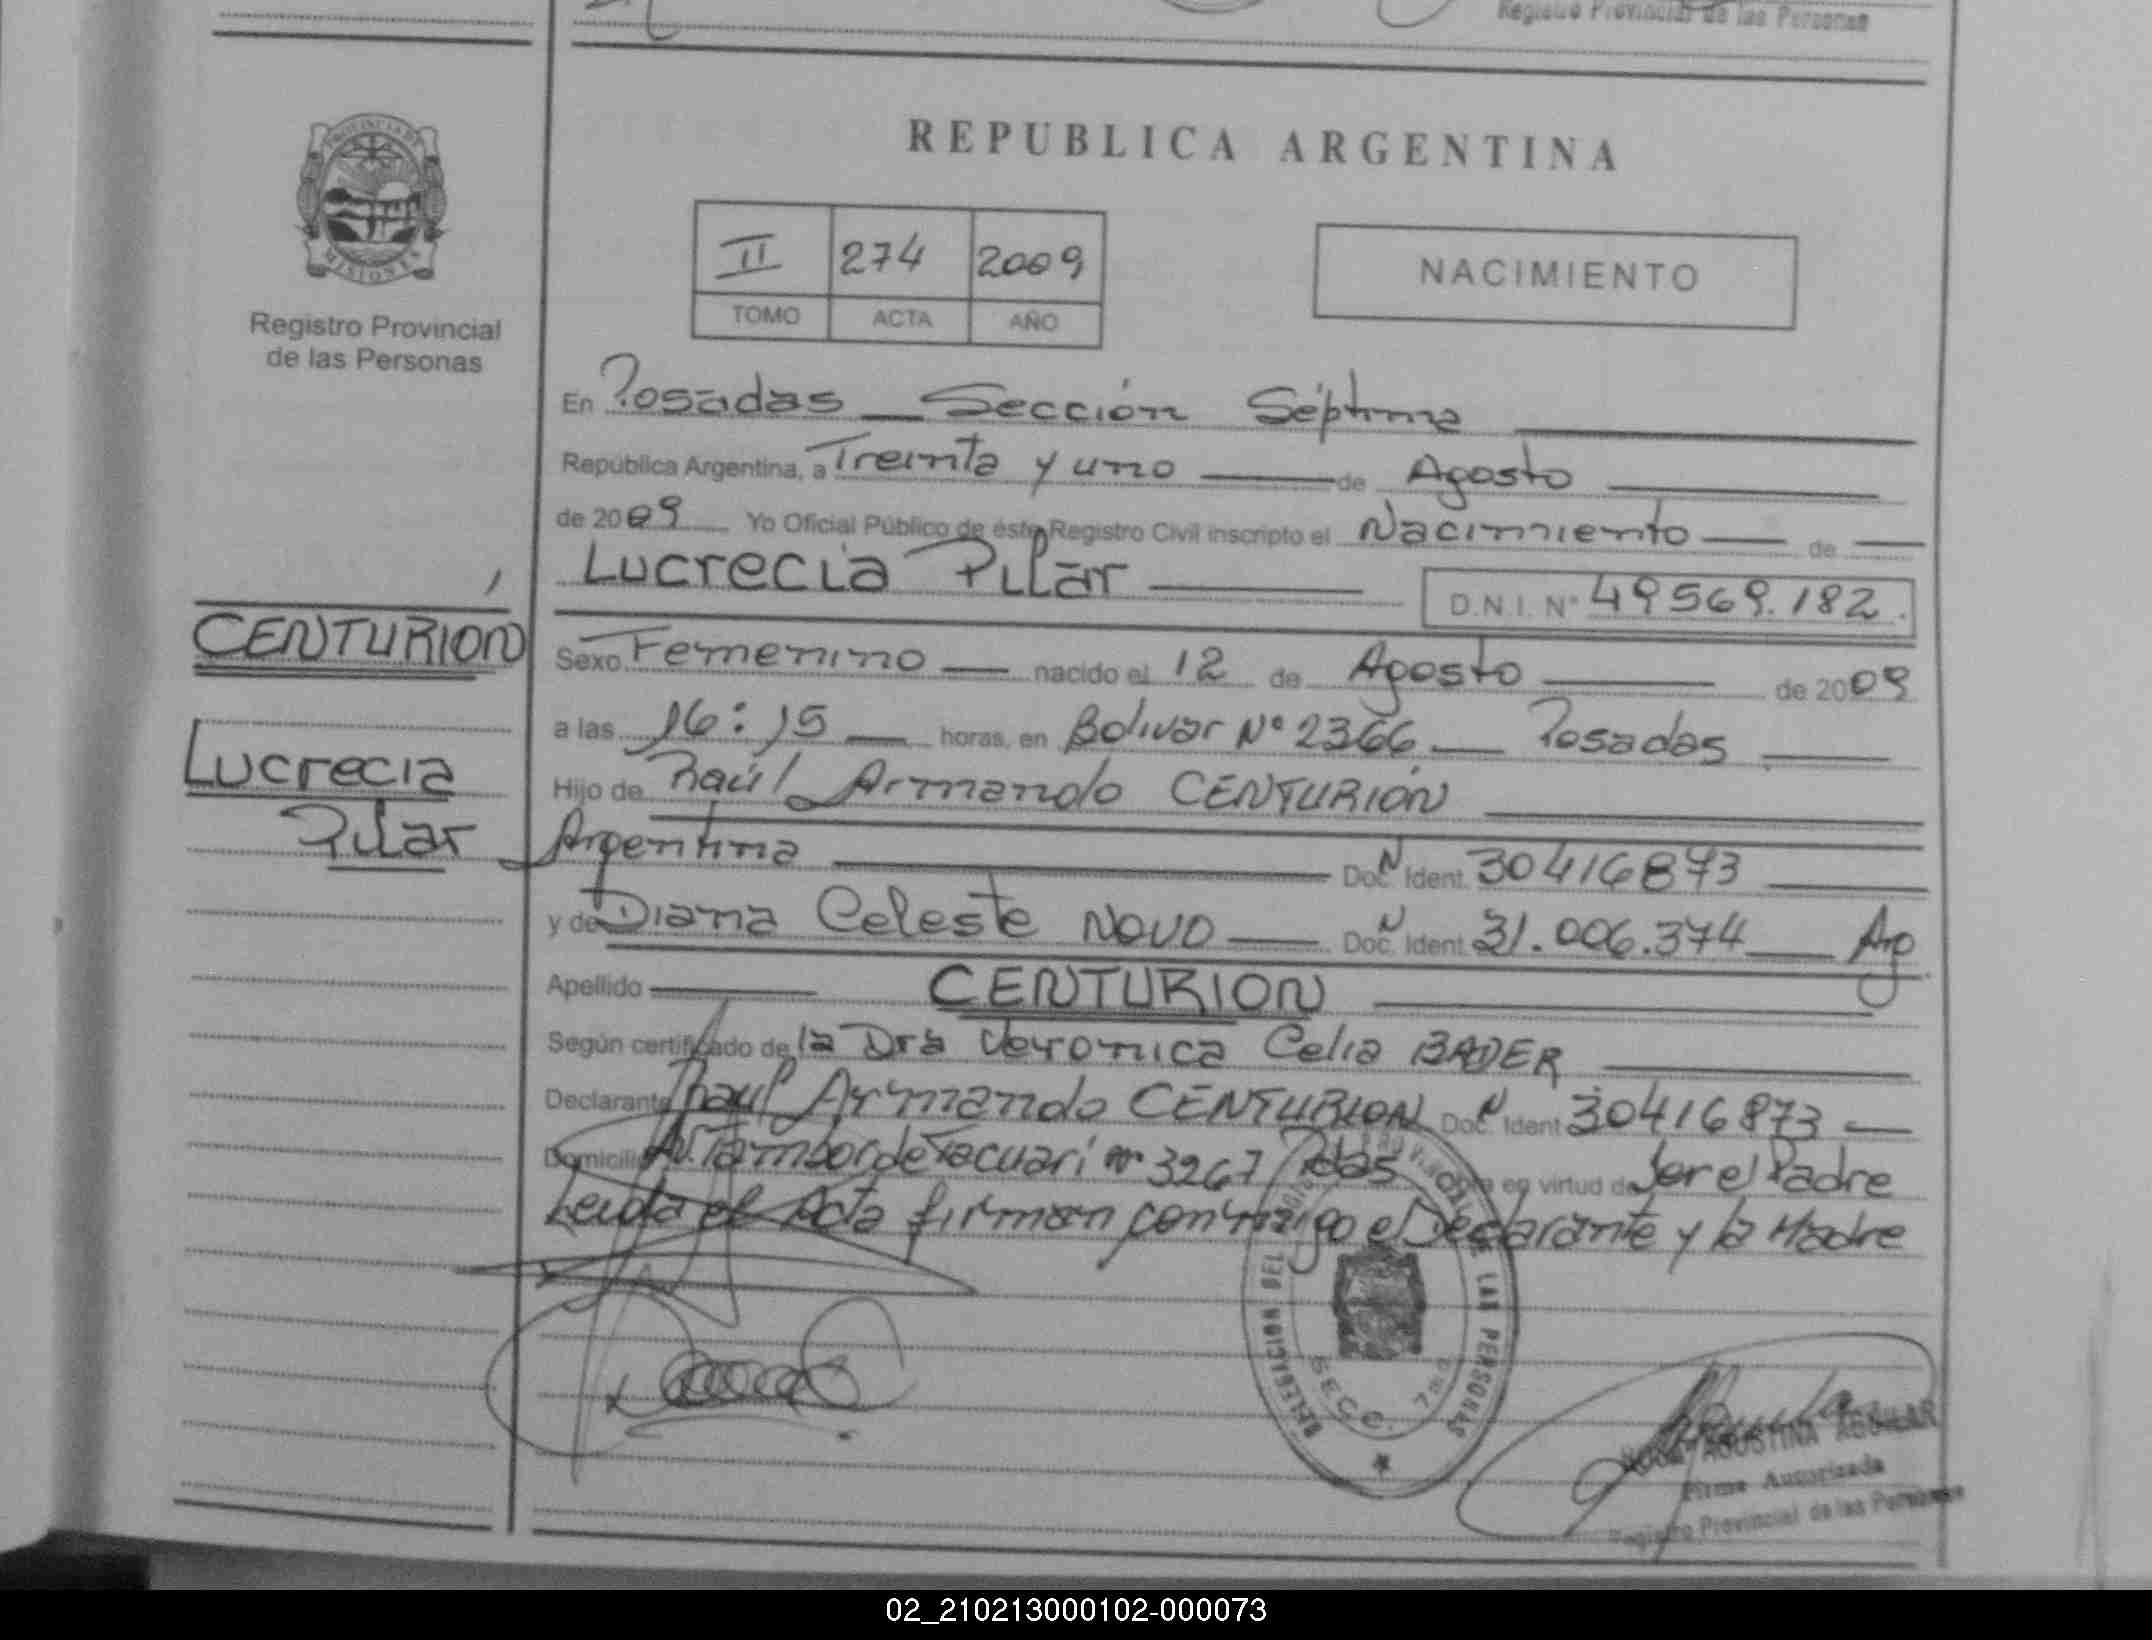 Registro Provincial de las Personas
PROVINCIA DE
MISIONES
Registro Provincial
de las Personas
REPUBLICA ARGENTINA
II 274 2009
TOMO ACTA AÑO
NACIMIENTO
En Posadas — Sección Séptima
República Argentina, a Treinta y uno — de Agosto
de 2009 Yo Oficial Público de éste Registro Civil inscripto el Nacimiento — de —
Lucrecia Pilar — D.N.I. N° 49569.182.
CENTURIÓN
Sexo Femenino — nacido el 12 de Agosto — de 2009
a las 16:15 — horas, en Bolivar N° 2366 — Posadas —
Lucrecia
Hijo de Raúl Armando CENTURIÓN
Pilar
Argentina — Doc. N Ident. 30416873 —
y de Diana Celeste NOVO — Doc. N Ident. 31.006.374 — Arg
Apellido — CENTURION —
Según certificado de la Dra Veronica Celia BADER —
Declarante Raul Armando CENTURION Doc. N Ident 30416873 —
Domicilio Av. Tambor de Tacuari N° 3267 Pdas en virtud de Ser el Padre
Leida el Acta firman conmigo el Declarante y la Madre
DELEGACION DEL LAS PERSONAS
SECC. 7ma
AGUSTINA AGUILAR
Firma Autorizada
Registro Provincial de las Personas
02_210213000102-000073